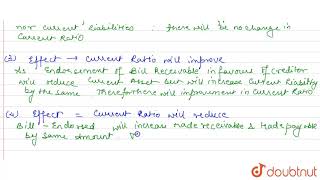 nor current liabilities : There will be no change in
Current Ratio
(3) Effect → Current Ratio will improve
As Endorsement of Bill Receivable in favour of Creditor
will reduce Current Asset but will increase Current Liability
by the same Therefore there will improvement in Current Ratio
(4) Effect = Current Ratio will reduce
Bill - Endorsed will increase trade receivable & trade payable
by same amount
doubtnut